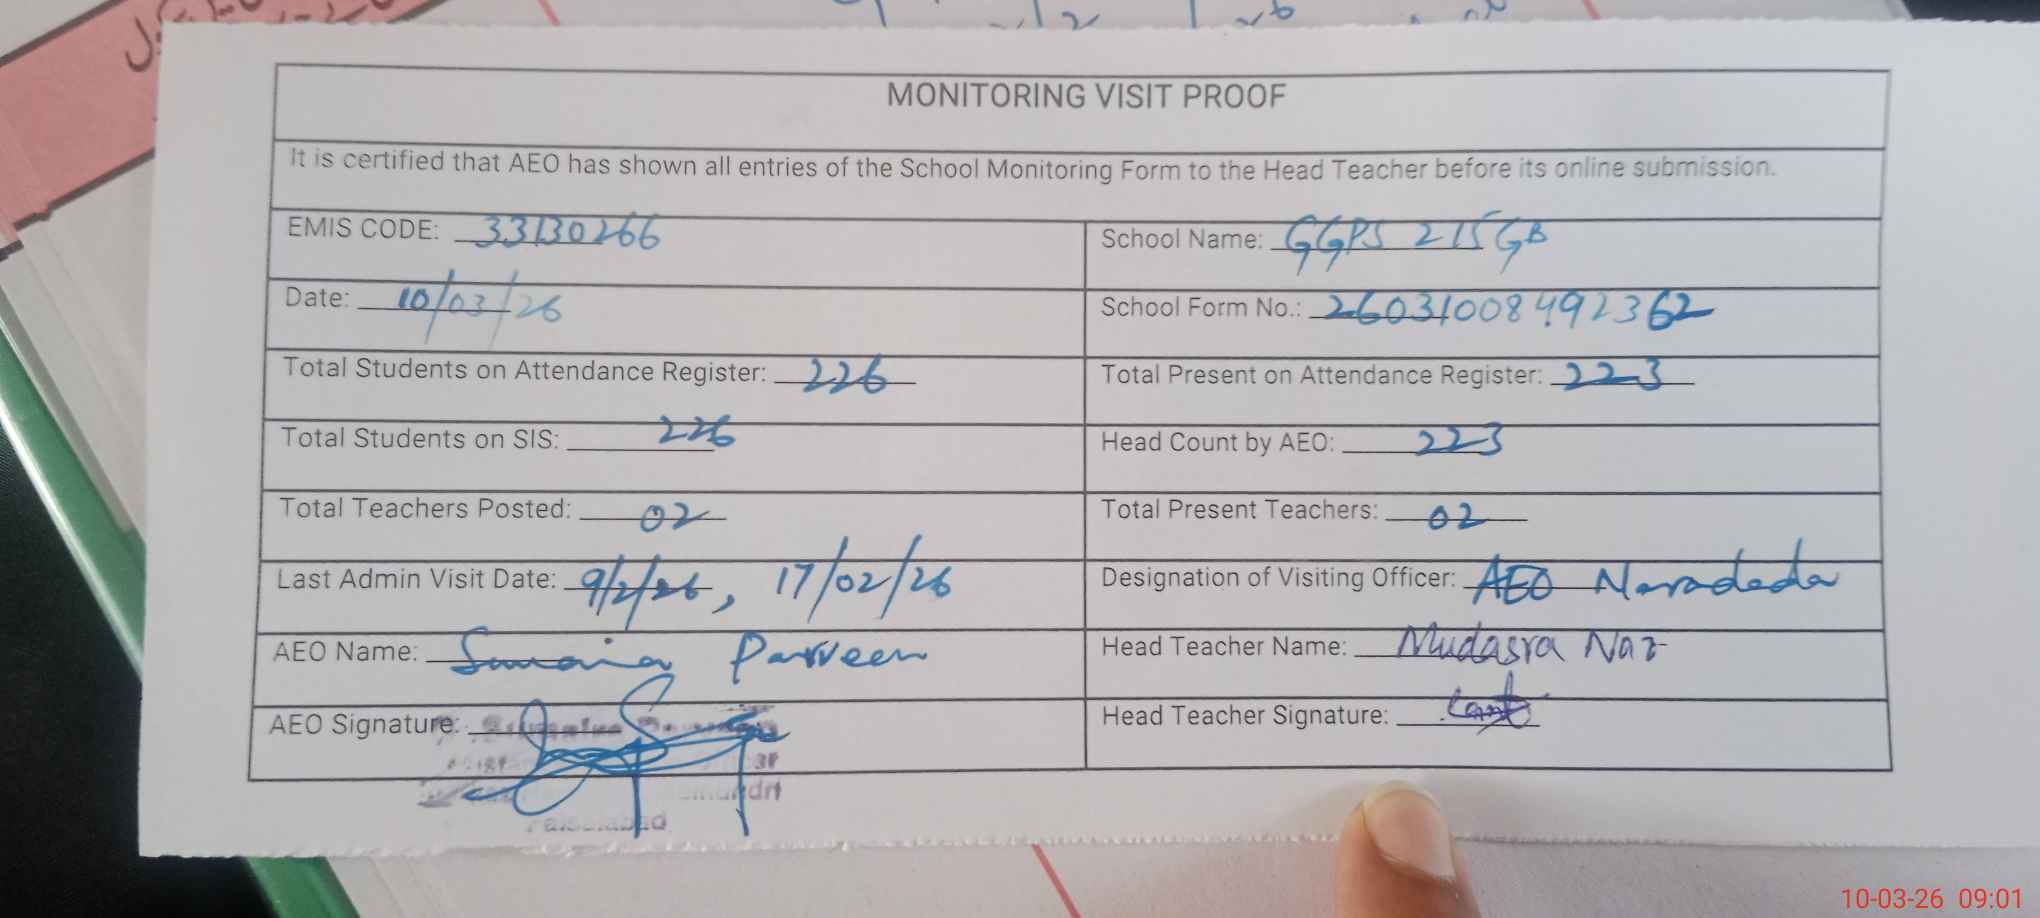 MONITORING VISIT PROOF
It is certified that AEO has shown all entries of the School Monitoring Form to the Head Teacher before its online submission.
EMIS CODE: 33130266 School Name: GGPS 215 GB
Date: 10/03/26 School Form No.: 260310084992362
Total Students on Attendance Register: 226 Total Present on Attendance Register: 223
Total Students on SIS: 226 Head Count by AEO: 223
Total Teachers Posted: 02 Total Present Teachers: 02
Last Admin Visit Date: 9/2/26, 17/02/26 Designation of Visiting Officer: AEO Naradada
AEO Name: Sumaira Parveen Head Teacher Name: Mudasra Naz
AEO Signature: Head Teacher Signature:
Faisalabad
10-03-26 09:01